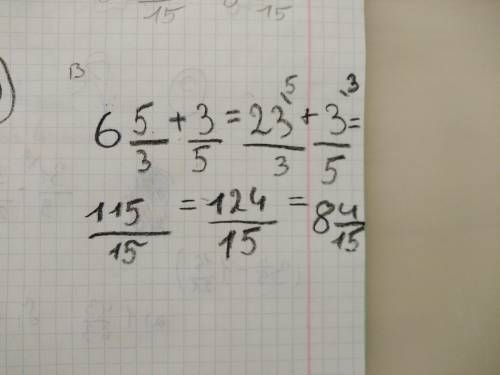 15 15
В
6 5/3 + 3/5 = 23/3 ,5 + 3/5 ,3 =
115/15 = 124/15 = 8 4/15